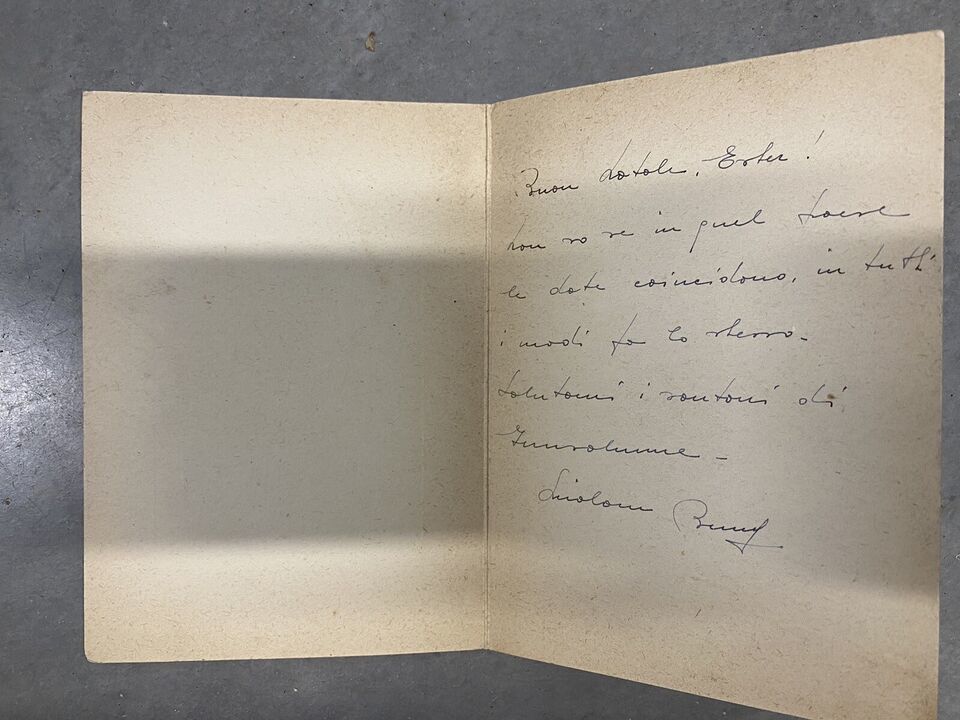 Buon Natale, Ester!
Non so se in quel paese
le date coincidono, in tutti
i modi fa lo stesso.
Salutami i santoni di
Gerusalemme -
Bruno